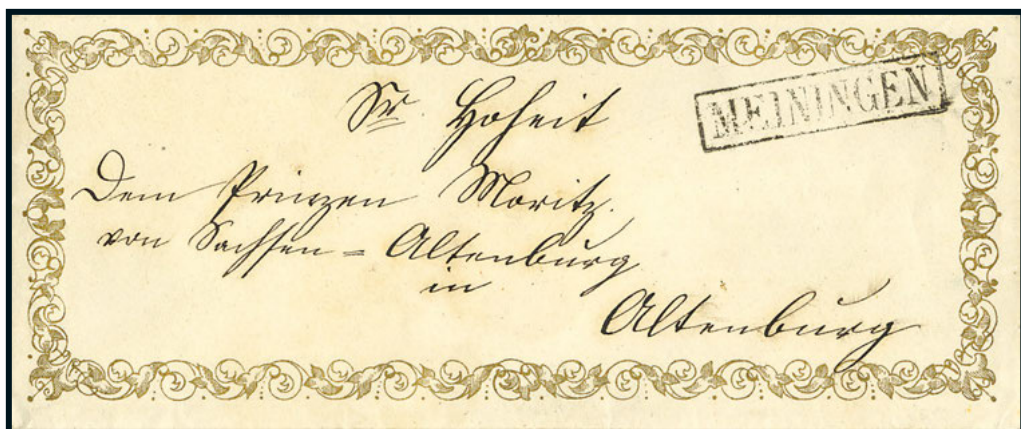 Sr. Hoheit
MEININGEN
Dem Prinzen Moritz.
von Sachsen = Altenburg
in
Altenburg